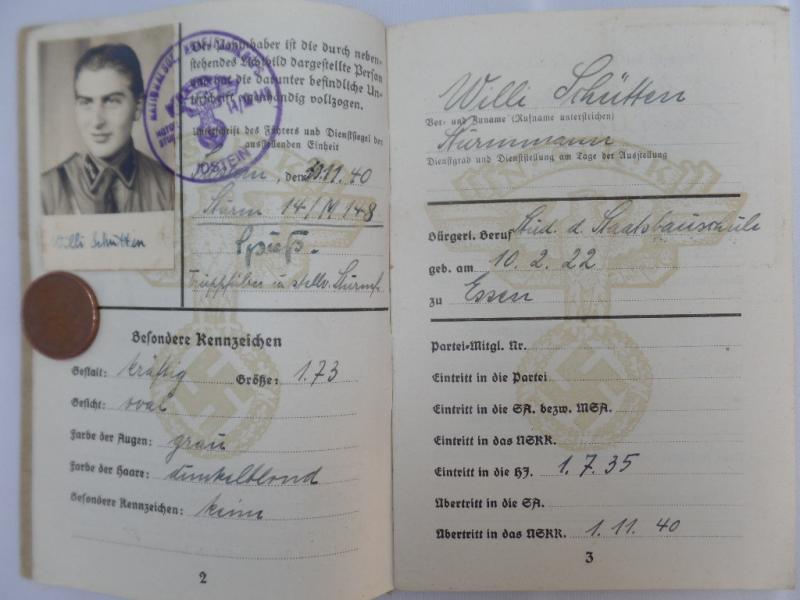 Der Paßinhaber ist die durch neben-
stehendes Lichtbild dargestellte Person
und hat die darunter befindliche Un-
terschrift eigenhändig vollzogen.
Unterschrift des Führers und Dienstsiegel der
ausstellenden Einheit
IDSTEIN
den 30.11.40
Sturm 14/M 148
Willi Schütten
Besondere Kennzeichen
Gestalt: kräftig Größe: 1.73
Gesicht: oval
Farbe der Augen: grau
Farbe der Haare: dunkelblond
Besondere Kennzeichen: keine
2
Willi Schütten
Vor- und Zuname (Rufname unterstrichen)
Sturmmann
Dienstgrad und Dienststellung am Tage der Ausstellung
Bürgerl. Beruf Stud. d. Staatsbauschule
geb. am 10.2.22
zu Essen
Partei-Mitgl. Nr.
Eintritt in die Partei
Eintritt in die SA. bezw. MSA.
Eintritt in das NSKK.
Eintritt in die HJ. 1.7.35
Übertritt in die SA.
Übertritt in das NSKK. 1.11.40
3